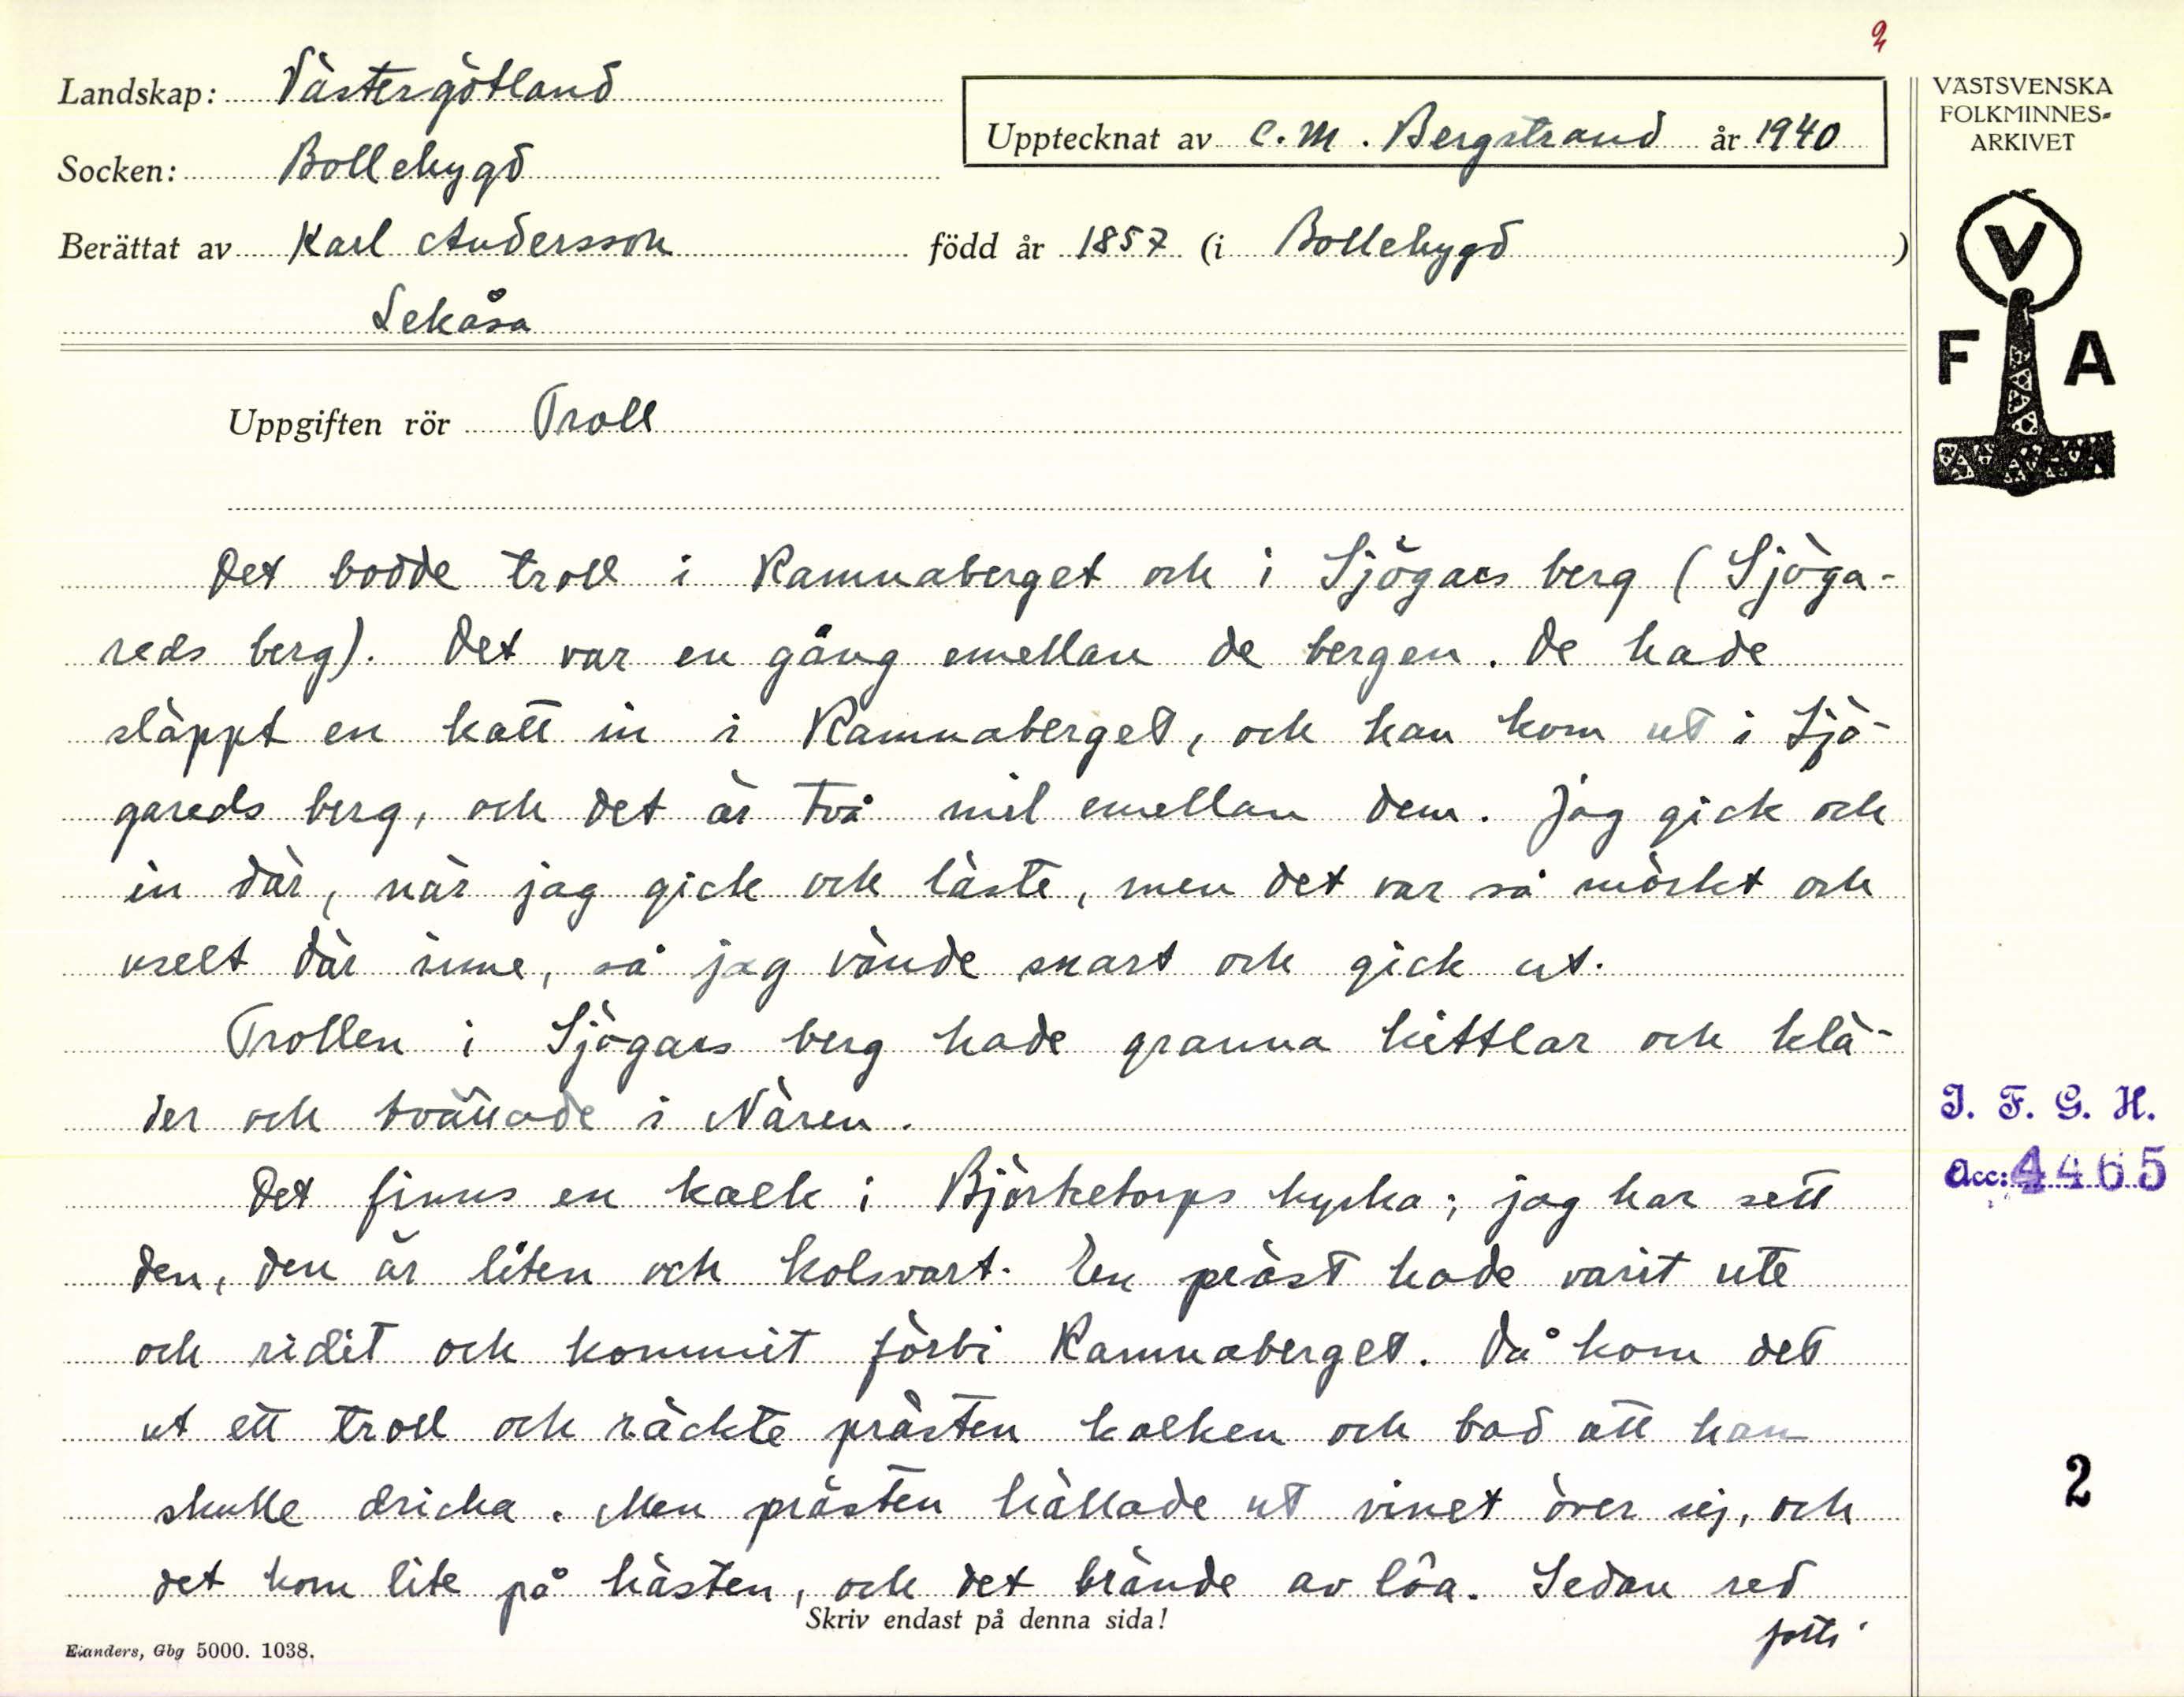 2
Landskap: Västergötland
Socken: Bollebygd
Upptecknat av C. M. Bergstrand år 1940
Berättat av Karl Andersson född år 1857 (i Bollebygd)
Lekåsa
VÄSTSVENSKA
FOLKMINNES-
ARKIVET
V
F A
Uppgiften rör Troll
Det bodde troll i Ramnaberget och i Sjögars berg (Sjöga-
reds berg). Det var en gång emellan de bergen. De hade
släppt en katt in i Ramnaberget, och han kom ut i Sjö-
gareds berg, och det är två mil emellan dem. Jag gick och
in där, när jag gick och läste, men det var så mörkt och
uselt där inne, så jag vände snart och gick ut.
Trollen i Sjögars berg hade granna kittlar och klä-
der och tvättade i Nären.
Det finns en kalk i Björketorps kyrka; jag har sett
den, den är liten och kolsvart. En präst hade varit ute
och ridit och kommit förbi Ramnaberget. Då kom det
ut ett troll och räckte prästen kalken och bad att han
skulle dricka. Men prästen hällade ut vinet över sej, och
det kom lite på hästen, och det brände av löa. Sedan red
I. F. G. H.
Acc: 4465
2
Skriv endast på denna sida!
Elanders, Gbg 5000. 1038.